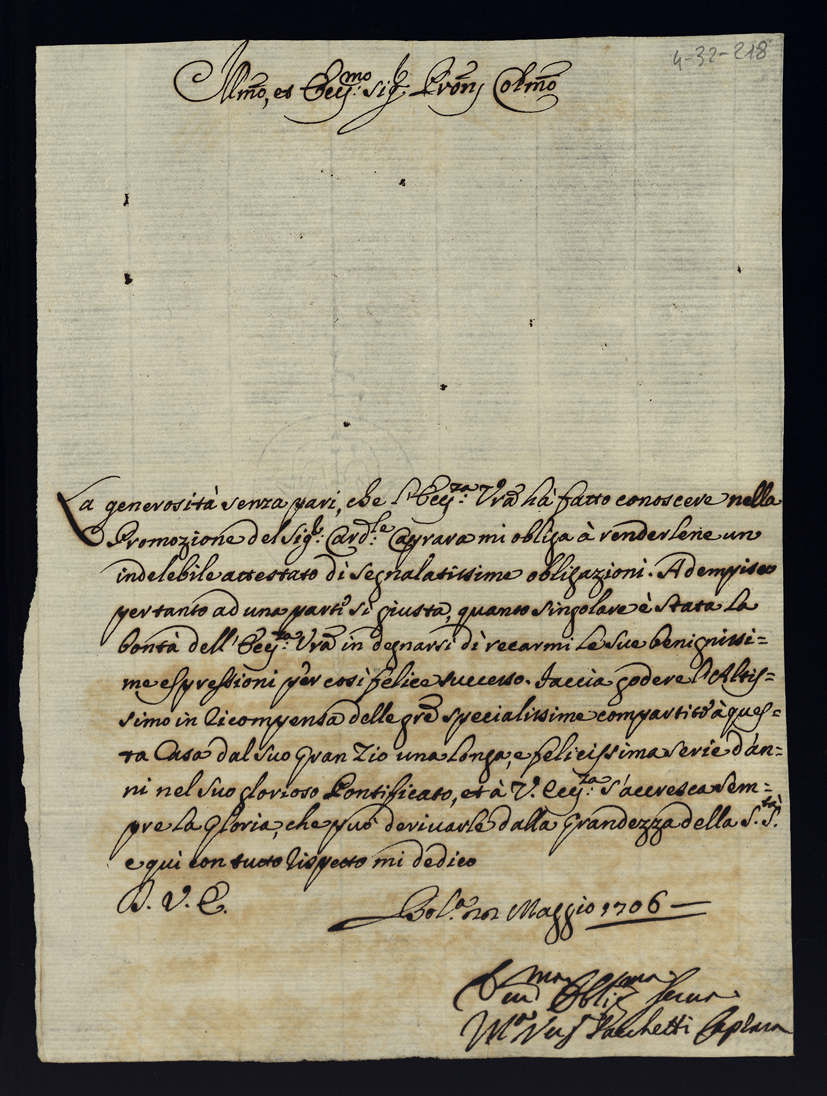 4-32-218
Illmo, et Eccmo. Sigr. Prone Colmo
La generosità senza pari, che l'Eccza. Vra hà fatto conoscere nella
Promozione del Sigr. Cardle. Caprara mi obliga à renderlene un
indelebile attestato di segnalatissime obligazioni. Adempisco
per tanto ad una parte si giusta, quanto singolare è stata la
bontà dell'Eccza. Vra in degnarsi di recarmi le sue benignissi=
me espressioni per così felice successo. Faccia godere l'Altis=
simo in ricompensa delle gre specialissime compartite à ques=
ta Casa dal suo gran Zio una longa, e felicissima serie d'an=
ni nel suo glorioso Pontificato, et à V. Eccza. s'accresca sem=
pre la gloria, che può derivarle dalla grandezza della S. Stà.
e qui con tutto rispetto mi dedico
D. V. E.
Bola. Maggio 1706
Obligma serva
Ma Sacchetti Caprara